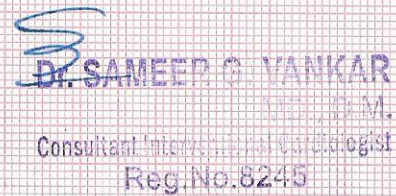 Dr. SAMEER G. VANKAR
M.D., D.M.
Consultant Interventional Cardiologist
Reg.No.8245